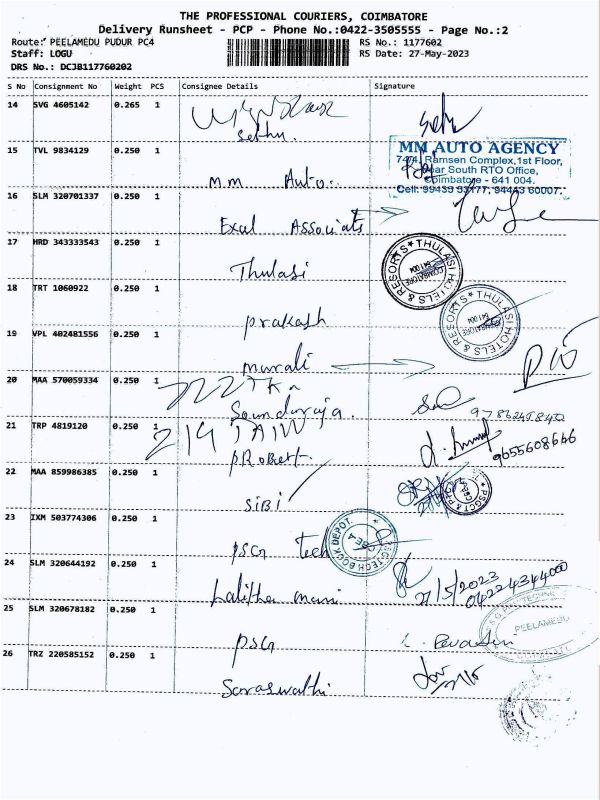 THE PROFESSIONAL COURIERS, COIMBATORE
Delivery Runsheet - PCP - Phone No.:0422-3505555 - Page No.:2
Route: PEELAMEDU PUDUR PC4 RS No.: 1177602
Staff: LOGU RS Date: 27-May-2023
DRS No.: DCJB117760202
S No Consignment No Weight PCS Consignee Details Signature
14 SVG 4605142 0.265 1
Sethu.
MM AUTO AGENCY
15 TVL 9834129 0.250 1
74/4, Ramsen Complex,1st Floor,
Near South RTO Office,
M.M Auto. Coimbatore - 641 004.
Cell: 99439 93177, 94443 60007.
16 SLM 320701337 0.250 1
Excel Associats
17 HRD 343333543 0.250 1
THULASI HOTELS & RESORTS COIMBATORE 641 004
Thulasi
18 TRT 1060922 0.250 1
THULASI HOTELS & RESORTS COIMBATORE 641 004
Prakash
19 VPL 402481556 0.250 1
Murali
20 MAA 570059334 0.250 1
Sounduraja.
21 TRP 4819120 0.250 1
9655608646
PRobert.
22 MAA 859986385 0.250 1
SiBi
23 IXM 503774306 0.250 1
TECH BOOK DEPOT
PSG Tech
24 SLM 320644192 0.250 1
27/5/2023
04224344000
Lalitha mani
25 SLM 320678182 0.250 1
PEELAMEDU
PSG
26 TRZ 220585152 0.250 1
Saraswathi